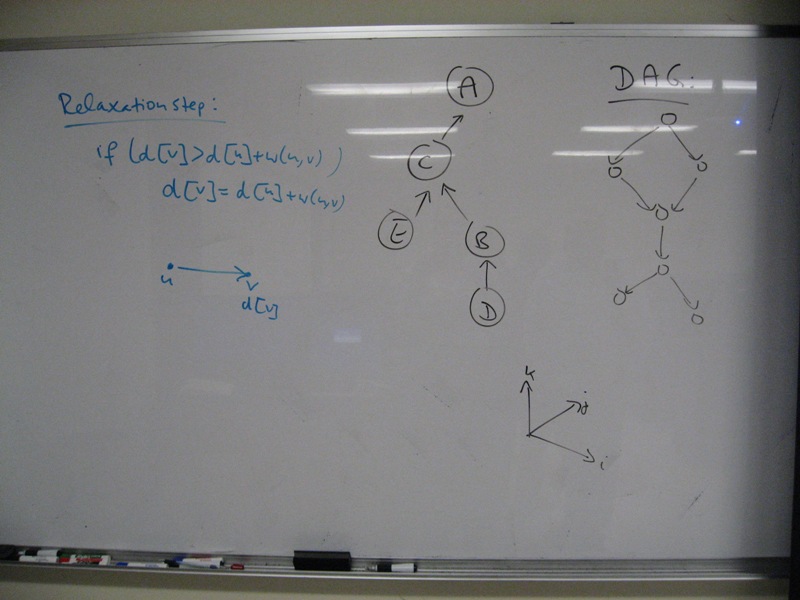 Relaxation step:
if (d[v]>d[u]+w(u,v))
d[v]=d[u]+w(u,v)
u
v
d[v]
A
C
E
B
D
DAG:
k
j
i